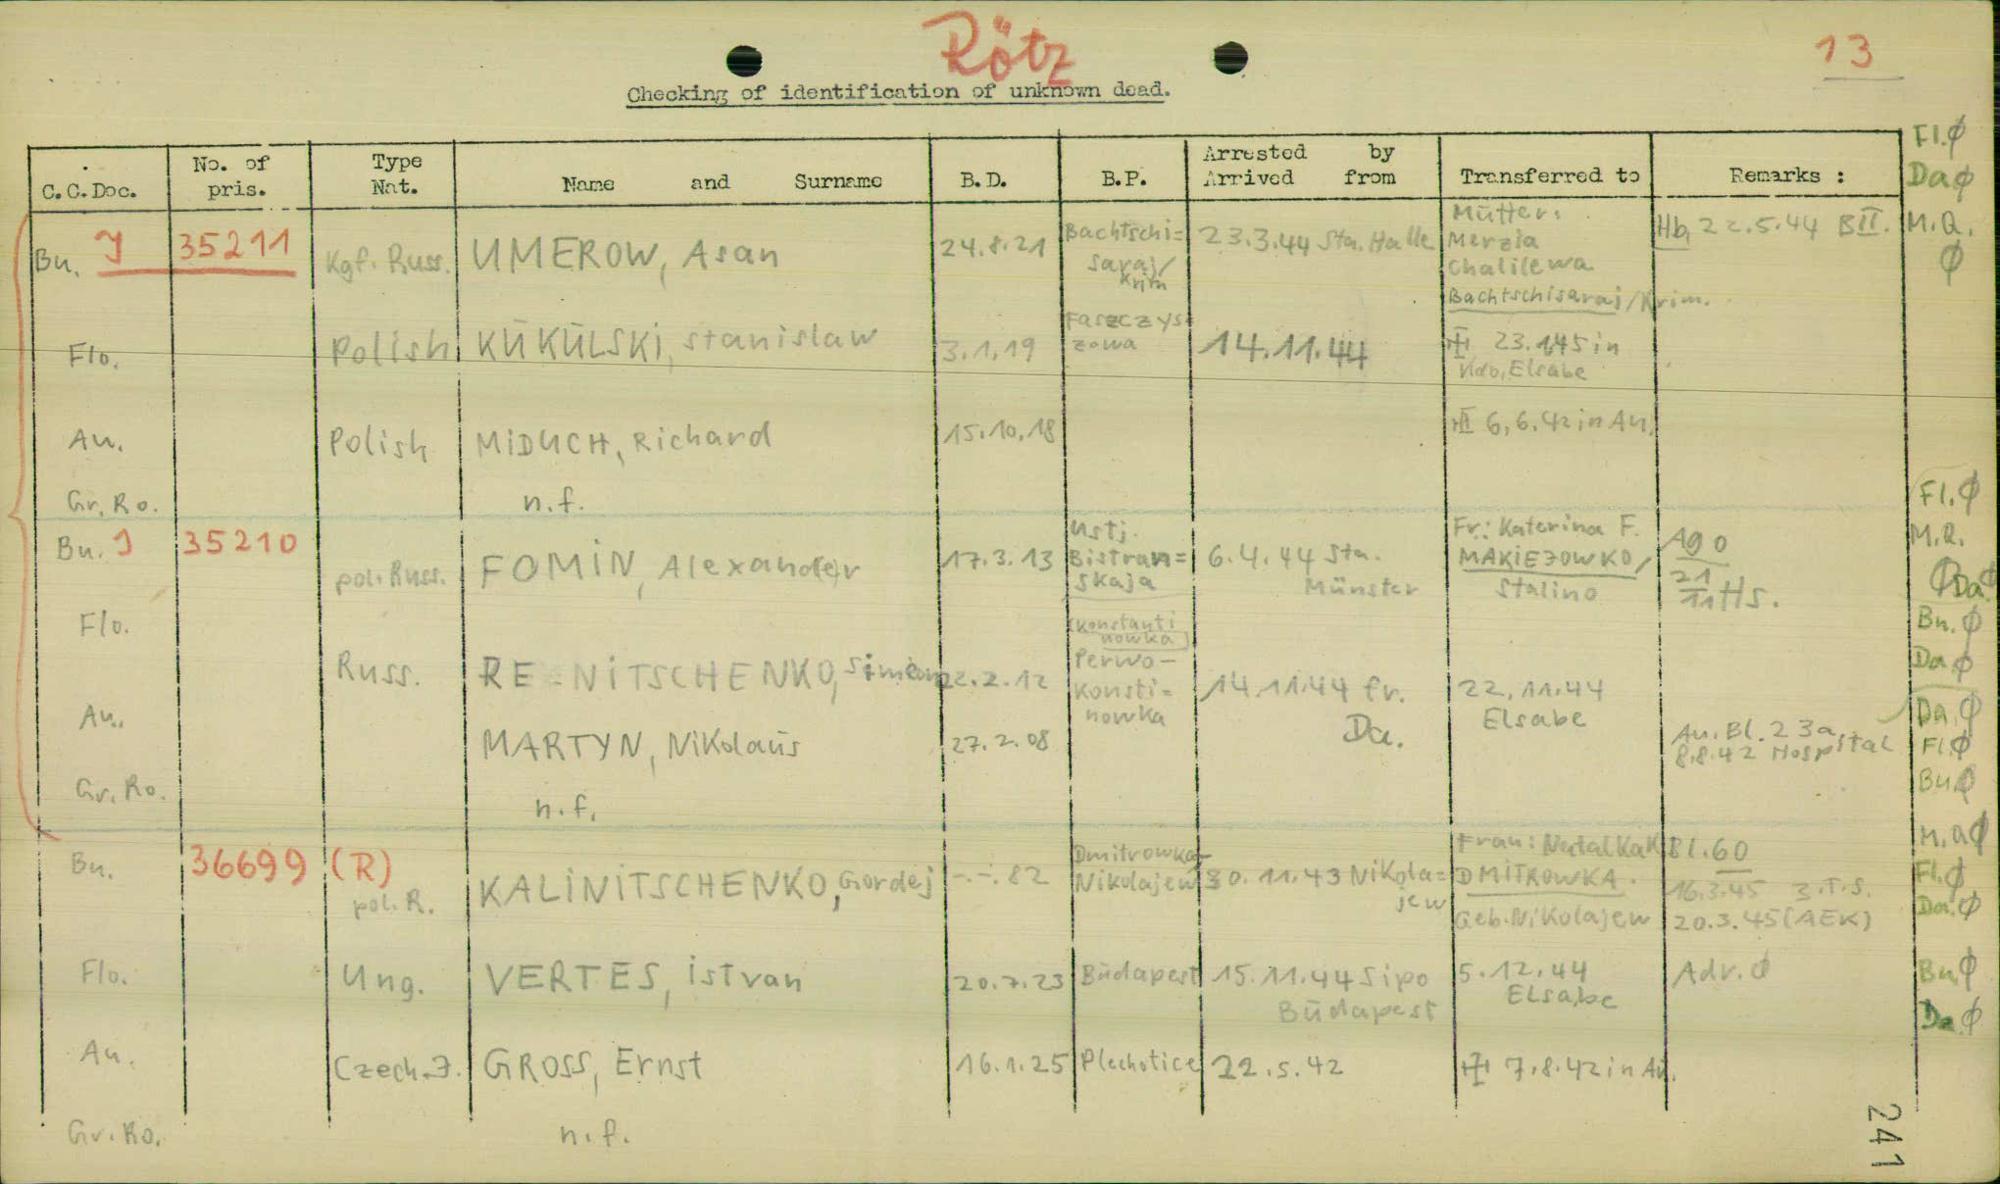 Rötz
13
Checking of identification of unknown dead.
C.C.Doc. No. of pris. Type Nat. Name and Surname B.D. B.P. Arrested by Arrived from Transferred to Remarks :
Fl.φ
Daφ
Bu. J 35211 Kgf. Russ. UMEROW, Asan 24.8.21 Bachtschi= saraj/ Krim 23.3.44 Sta. Halle Mutter: Merzia Chalilewa Bachtschisaraj/Krim. Hb, 22.5.44 BII. M.Q. φ
Flo. Polish KUKULSKI, Stanislaw 3.1.19 14.11.44 23.1.45 in Elsabe
Au. Polish MIDUCH, Richard 15.10.18 6.6.42 in Au.
Gr. Ro. n.f. Fl.φ
Bu. J 35210 pol. Russ. FOMIN, Alexander 17.3.13 Ustj. Bistran= skaja 6.4.44 Sta. Münster Fr.: Katerina F. MAKIEJOWKO, Stalino Ago 21 11 Hs. M.Q. φ Da.φ
Flo. Russ. NITSCHENKO, Simeon 22.2.12 (Konstanti nowka) Perwo- Konsti= nowka 14.11.44 fr. Da. 22.11.44 Elsabe Bu.φ Da.φ
Au. MARTYN, Nikolaus 27.2.08 Au. Bl. 23a, 8.8.42 Hospital Da.φ Fl.φ
Gr. Ro. n.f. Buφ
Bu. 36699 (R) pol. R. KALINITSCHENKO, Gordej -.-.82 Dmitrowka- Nikolajew 30.11.43 Nikola= jew Frau: Natalka K DMITROWKA. Geb. Nikolajew Bl. 60 16.3.45 3.T.S. 20.3.45 (AEK) M.Qφ Fl.φ Da.φ
Flo. Ung. VERTES, Istvan 20.7.23 Budapest 15.11.44 Sipo Budapest 5.12.44 Elsabe Adr.φ Buφ Da.φ
Au. Czech.J. GROSS, Ernst 16.1.25 Plechotice 22.5.42 7.8.42 in Au.
Gr. Ro. n.f.
241